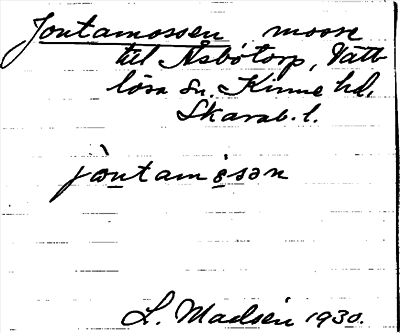 Jontamossen mosse
till Åsbötorp, Vätt-
lösa sn. Kinne hd.
Skarab. l.
jòntamòsən
L. Madsén 1930.